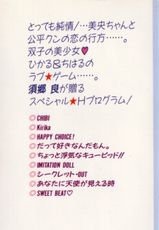 とっても純情!…美央ちゃんと
公平クンの恋の行方……。
双子の美少女♥
ひかる&ちはるの
ラブ★ゲーム……。
須郷 良が贈る
スペシャル★Hプログラム!
◎CHIBI
◎Kirika
◎HAPPY CHOICE!
◎だって好きなんだもん。
◎ちょっと浮気なキューピッド!!
◎IMITATION DOLL
◎シークレット・OUT
◎あなたに天使が見える時
◎SWEET BEAT♡